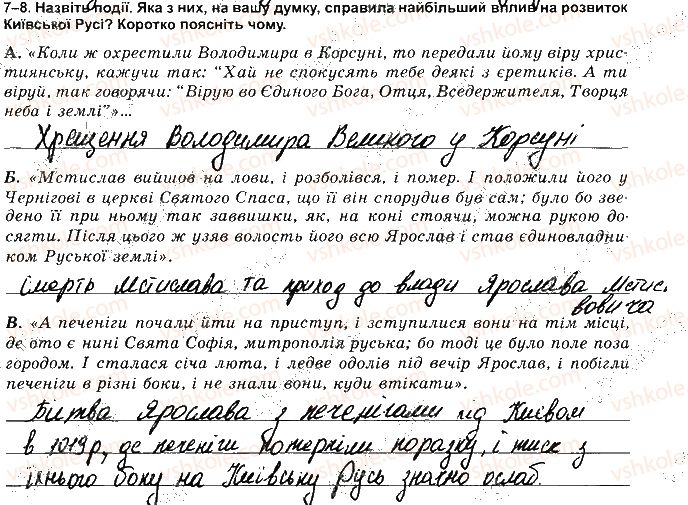 7–8. Назвіть події. Яка з них, на вашу думку, справила найбільший вплив на розвиток
Київської Русі? Коротко поясніть чому.
А. «Коли ж охрестили Володимира в Корсуні, то передали йому віру хрис-
тиянську, кажучи так: “Хай не спокусять тебе деякі з єретиків. А ти
віруй, так говорячи: “Вірую во Єдиного Бога, Отця, Вседержителя, Творця
неба і землі”»...
Хрещення Володимира Великого у Корсуні
Б. «Мстислав вийшов на лови, і розболівся, і помер. І положили його у
Чернігові в церкві Святого Спаса, що її він спорудив був сам; було бо зве-
дено її при ньому так заввишки, як, на коні стоячи, можна рукою до-
сягти. Після цього ж узяв волость його всю Ярослав і став єдиновладни-
ком Руської землі».
Смерть Мстислава та прихід до влади Ярослава Мстис
вовича
В. «А печеніги почали йти на приступ, і зступилися вони на тім місці,
де ото є нині Свята Софія, митрополія руська; бо тоді це було поле поза
городом. І сталася січа люта, і ледве одолів під вечір Ярослав, і побігли
печеніги в різні боки, і не знали вони, куди втікати».
Битва Ярослава з печенігами під Києвом
в 1019р, де печеніги потерпіли поразку, і тиск з
їхнього боку на Київську Русь значно ослаб.
vshkole.com